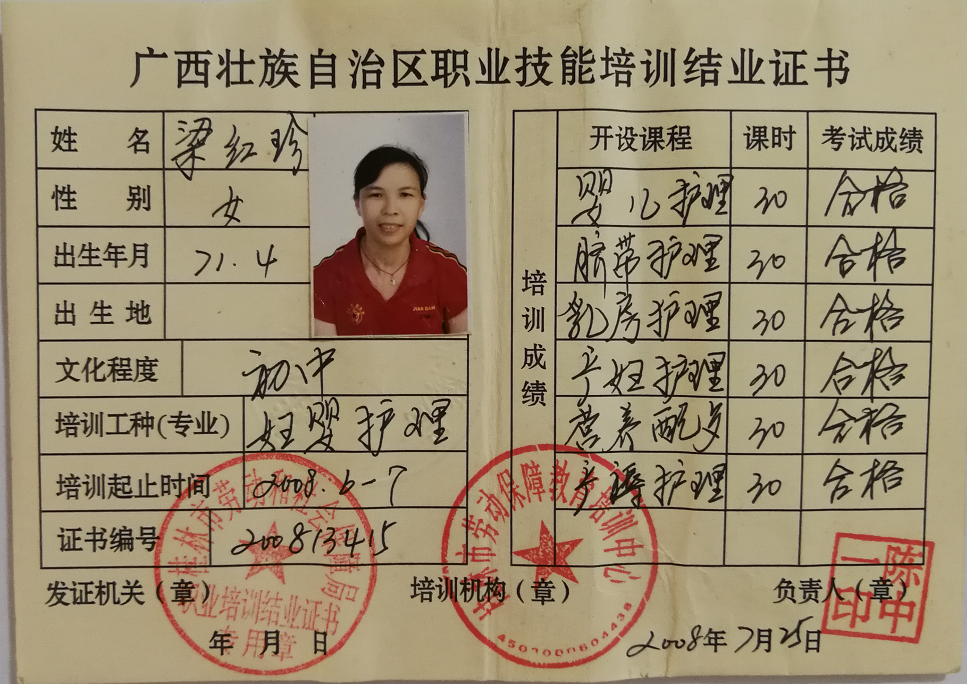 广西壮族自治区职业技能培训结业证书
姓 名 梁红珍
性 别 女
出生年月 71.4
出生地
文化程度 初中
培训工种(专业) 妊婴护理
培训起止时间 2008.6-7
证书编号 200813415
发证机关(章)
年 月 日
桂林市劳动和社会保障局
职业培训结业证书
专用章
培训成绩
开设课程 课时 考试成绩
婴儿护理 30 合格
脐带护理 30 合格
乳房护理 30 合格
产妇护理 30 合格
营养配餐 30 合格
产褥护理 30 合格
培训机构(章)
桂林市劳动保障教育培训中心
4503000604438
负责人(章)
陈中一印
2008年7月25日